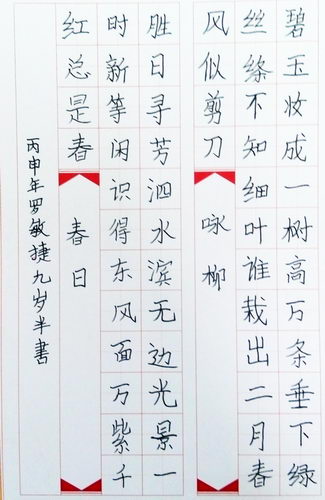 碧玉妆成一树高万条垂下绿
丝绦不知细叶谁栽出二月春
风似剪刀
咏柳
胜日寻芳泗水滨无边光景一
时新等闲识得东风面万紫千
红总是春
春日
丙申年罗敏捷九岁半書